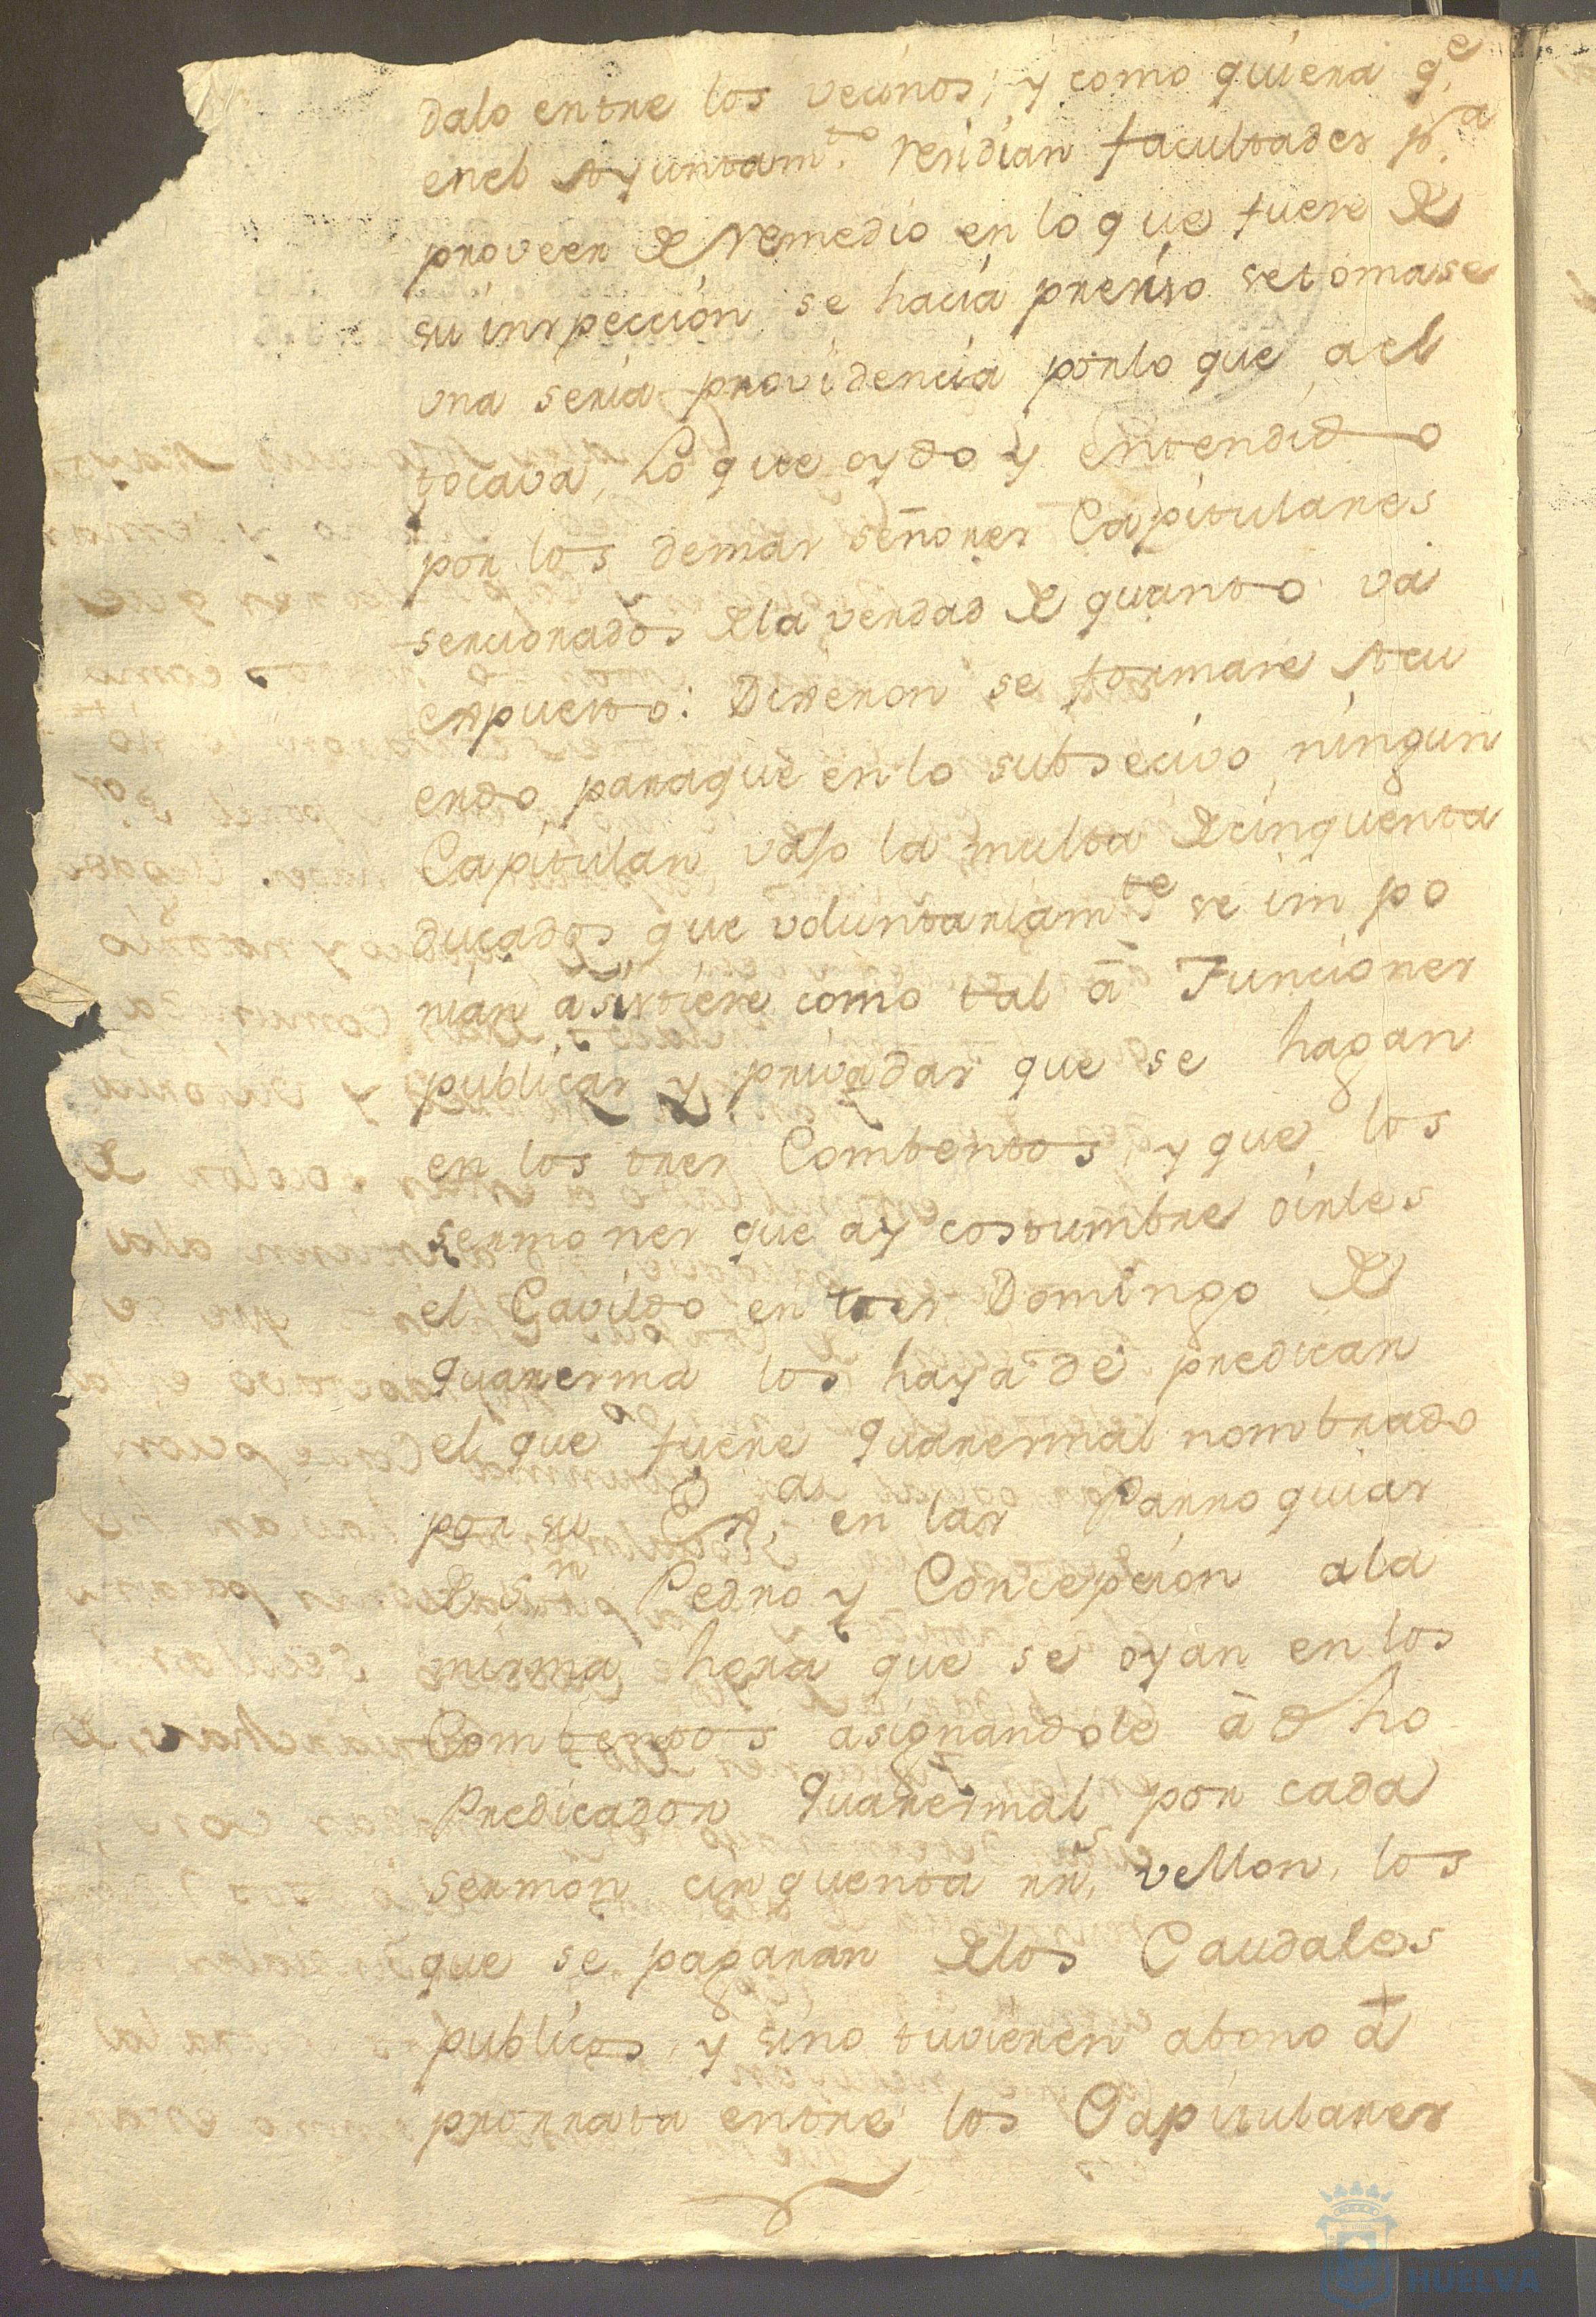 dalo entre los vecinos; y como quiera q.e
enel Ayuntam.to residian facultades p.a
proveer de remedio en lo que fuere de
su inspeccion se hacia preciso se tomase
una seria providencia porlo que ael
tocava, Lo que oydo y entendido
por los demas señores Capitulares
sercionados dela verdad de quanto va
expuesto: Dixeron se formase Acu
erdo paraque en lo subsecivo ningun
Capitular vaJo la multa de cinquenta
ducados que voluntariam.te se impo
nian asistiese como tal â Funciones
publicas y privadas que se hagan
en los tres Combentos, y que los
sermones que ay costumbre oirles
el Cavildo en tres Domingo de
quaresma los haya de predicar
el que fuere quaresmal nombrado
por su E.a en las Parroquias
de S.n Pedro y Concepcion ala
misma hora que se oyan en los
Combentos asignandole â dho
Predicador quaresmal por cada
sermon cinquenta rr.s vellon, los
que se pagaran delos Caudales
publicos y sino tuvieren abono â
prorrata entre los Capitulares
HUELVA